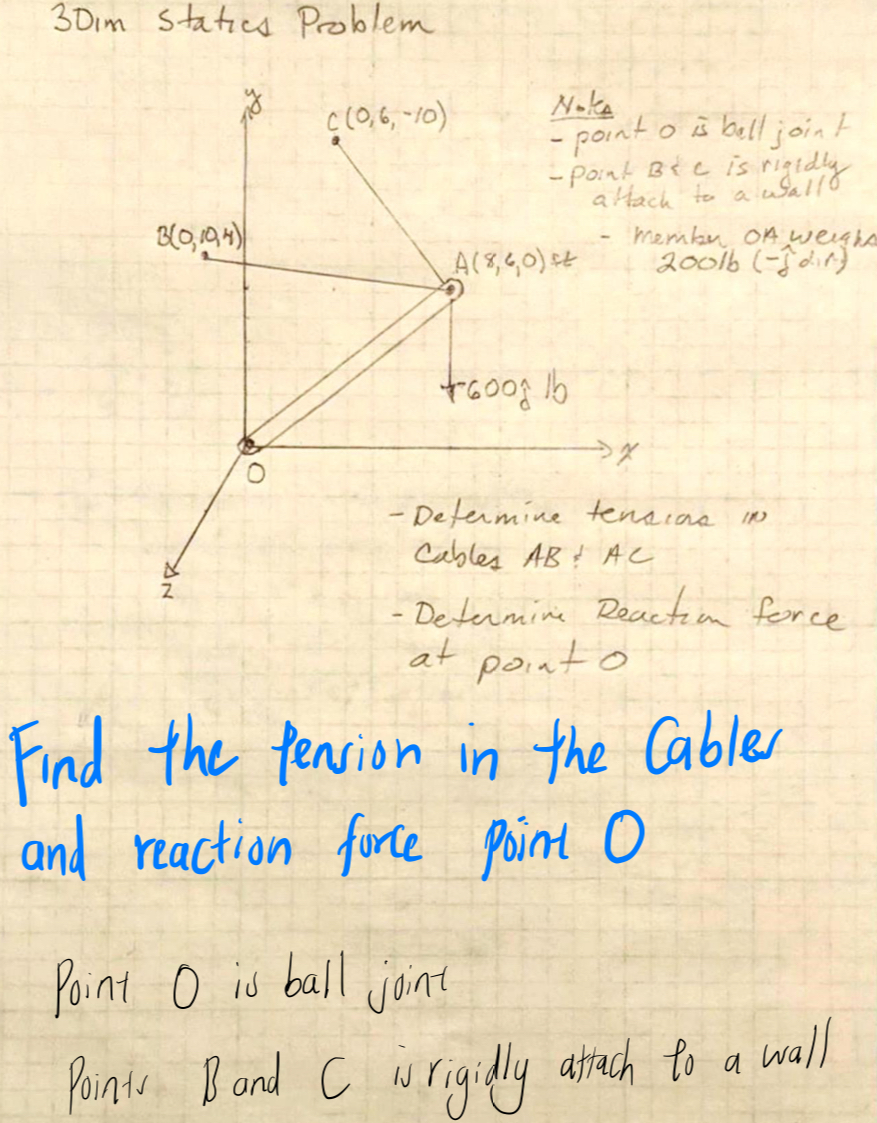 3Dim Statics Problem
y
C(0,6,-10)
Notes
- point O is ball joint
- point B & C is rigidly
attach to a wall
B(0,10,4)
- Member OA weighs
A(8,6,0) ft
200lb (-ĵ dir)
-600ĵ lb
x
O
z
- Determine tensions in
Cables AB & AC
- Determine Reaction force
at point O
Find the tension in the Cables
and reaction force point O
Point O is ball joint
Points B and C is rigidly attach to a wall